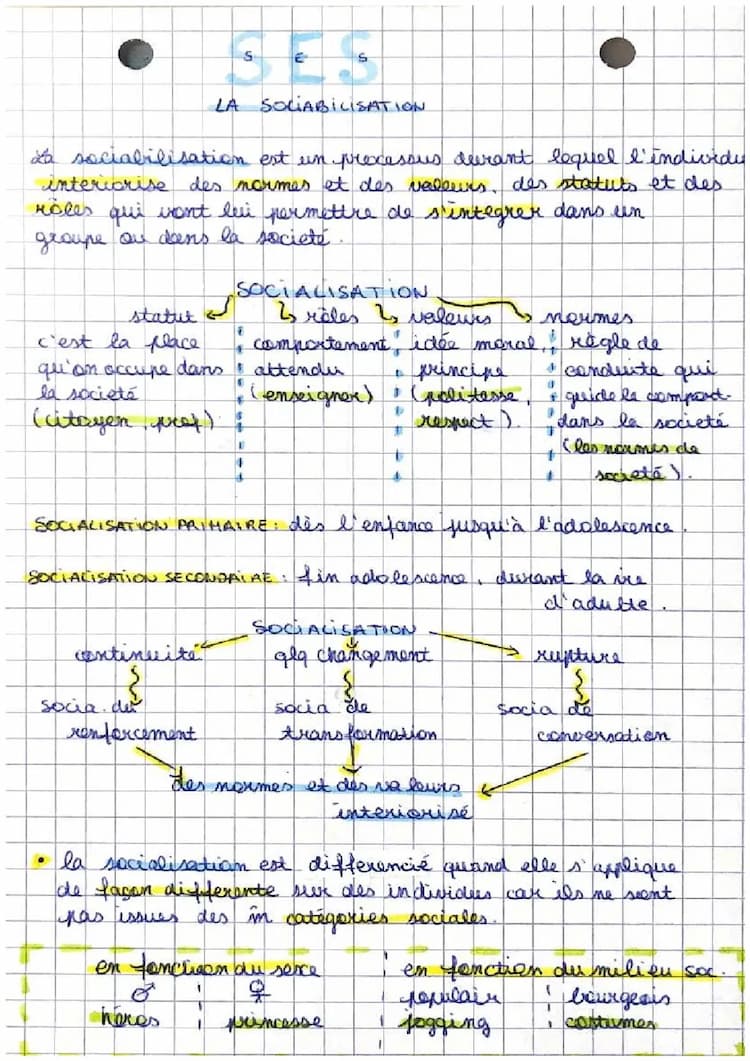 SES
S E S
LA SOCIABILISATION
La sociabilisation est un processus durant lequel l'individu
interiorise des normes et des valeurs, des statuts et des
rôles qui vont lui permettre de s'integrer dans un
groupe ou dans la societé.
SOCIALISATION
statut rôles valeurs normes
c'est la place comportement idée moral, règle de
qu'on occupe dans attendu principe conduite qui
la societé (enseigner) (politesse, guide le comport.
(citoyen, prof) respect). dans la societé
(les normes de
societé).
SOCIALISATION PRIMAIRE : dès l'enfance jusqu'à l'adolescence.
SOCIALISATION SECONDAIRE : fin adolescence, durant la vie
d'adulte.
SOCIALISATION
continuité qlq changement rupture
socia. du socia de socia de
renforcement transformation conversation
des normes et des valeurs
interiorisé
• la socialisation est differencié quand elle s'applique
de façon differente sur des individus car ils ne sont
pas issues des m̂ catégories sociales.
en fonction du sexe en fonction du milieu soc.
♂ ♀ populair bourgeois
héros princesse jogging costumes